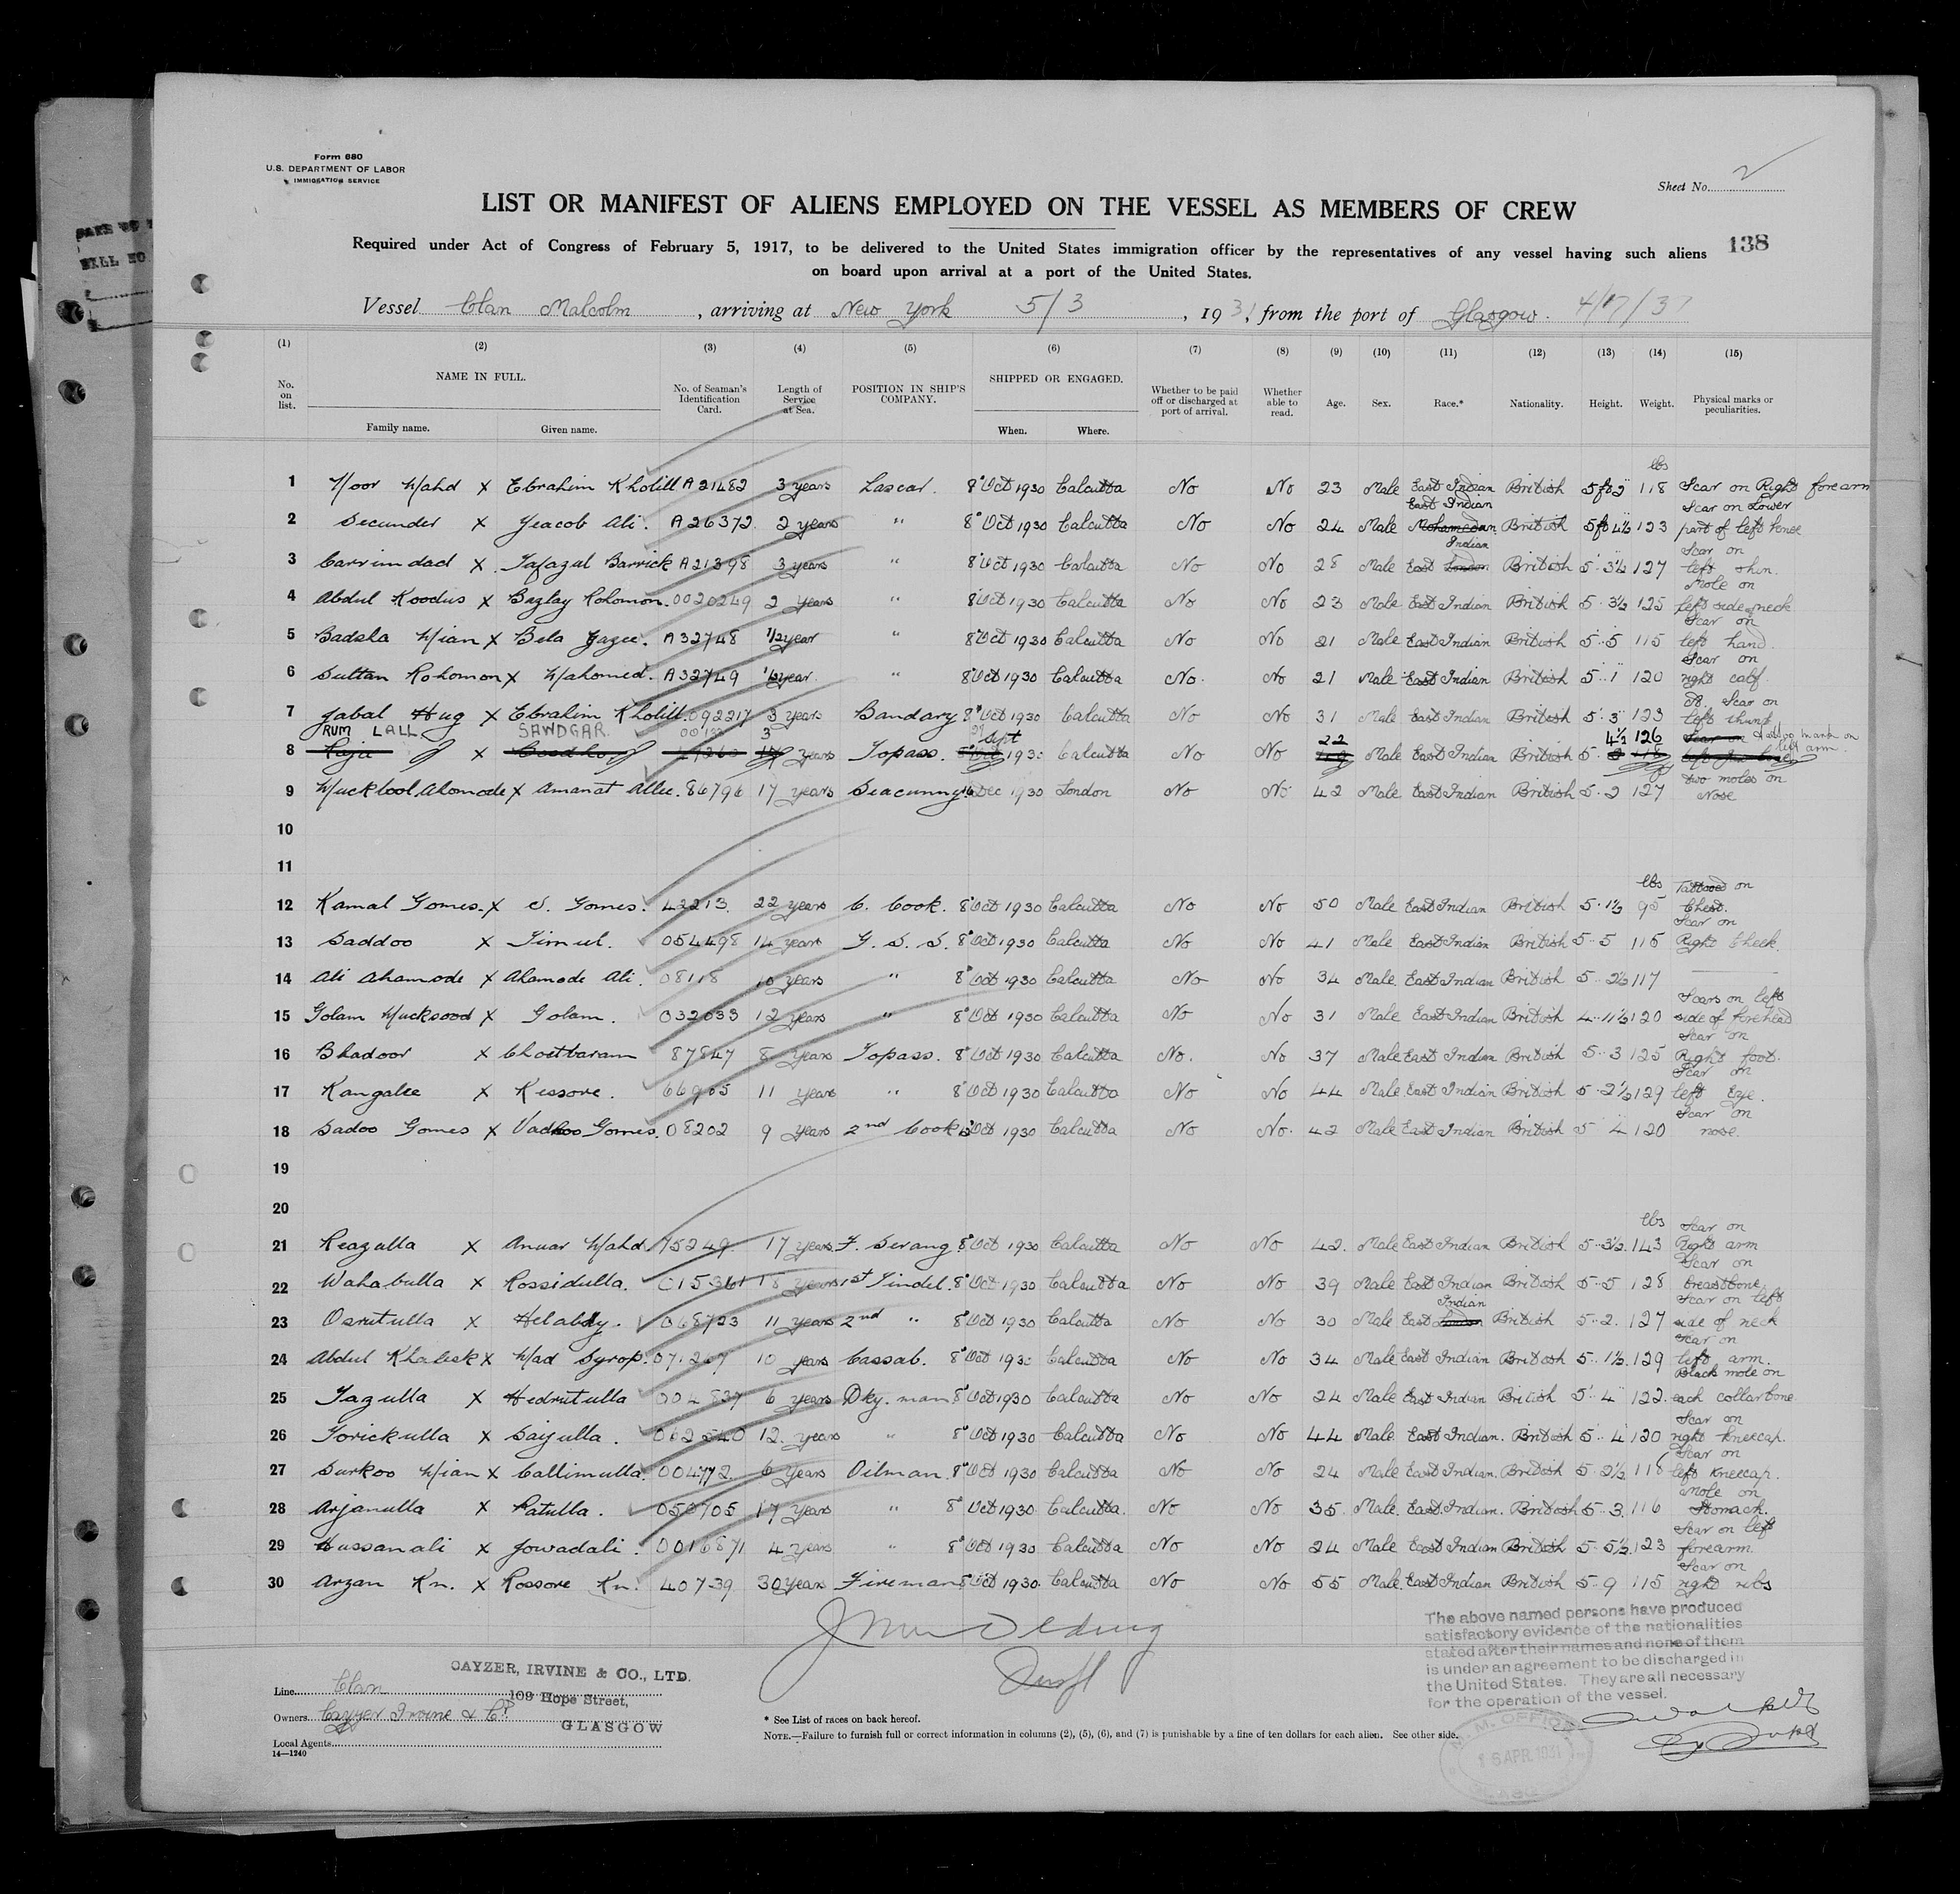 Form 680
U.S. DEPARTMENT OF LABOR
IMMIGRATION SERVICE
Sheet No. 2
LIST OR MANIFEST OF ALIENS EMPLOYED ON THE VESSEL AS MEMBERS OF CREW
Required under Act of Congress of February 5, 1917, to be delivered to the United States immigration officer by the representatives of any vessel having such aliens
138
on board upon arrival at a port of the United States.
Vessel Clan Malcolm, arriving at New York 5/3, 1931, from the port of Glasgow.
(1) (2) (3) (4) (5) (6) (7) (8) (9) (10) (11) (12) (13) (14) (15)
No. on list. NAME IN FULL. Family name. Given name. No. of Seaman's Identification Card. Length of Service at Sea. POSITION IN SHIP'S COMPANY. SHIPPED OR ENGAGED. When. Where. Whether to be paid off or discharged at port of arrival. Whether able to read. Age. Sex. Race.* Nationality. Height. Weight. Physical marks or peculiarities.
lbs
1 Noor Mahd x Ebrahim Kholill A21482 3 years Lascar. 8" Oct 1930 Calcutta No No 23 Male East Indian British 5ft 2" 118 Scar on Right forearm
2 Secunder x Yeacob Ali. A26372 2 years " 8" Oct 1930 Calcutta No No 24 Male Mohamedan East Indian British 5ft 4½ 123 Scar on Lower part of left knee
3 Carrimdad x Tafazal Barrick A21398 3 years " 8" Oct 1930 Calcutta No No 28 Male East Indian British 5 3½ 127 Scar on left shin.
4 Abdul Koodus x Bazlay Rohomon. 0020249 2 years " 8" Oct 1930 Calcutta No No 23 Male East Indian British 5 3½ 125 Mole on left side of neck
5 Badsha Mian x Bela Gazee. A32748 1/2 year " 8" Oct 1930 Calcutta No No 21 Male East Indian British 5 5 115 Scar on left hand.
6 Sultan Rohomon x Mahomed. A32749 1/2 year " 8" Oct 1930 Calcutta No. No 21 Male East Indian British 5 1 120 Scar on right calf.
7 Jabal Hug x Ebrahim Kholill. 092217 3 years Bandary 8" Oct 1930 Calcutta No No 31 Male East Indian British 5 3 123 Scar on left thumb
8 RUM LALL x SAWDGAR 3 years Topass. Sept 1930 Calcutta No No 22 Male East Indian British 5 4½ 126 Tattoo mark on left arm.
9 Muckbool Ahomode x Amanat Allee. 86796 17 years Seacunny Dec 1930 London No No 42 Male East Indian British 5 2 127 two moles on Nose
10
11
lbs
12 Kamal Gomes. x S. Gomes. 42213. 22 years C. Cook. 8" Oct 1930 Calcutta No No 50 Male East Indian British 5 1½ 95 Tattooed on Chest.
13 Saddoo x Timul. 054498 14 years G. S. S. 8" Oct 1930 Calcutta No No 41 Male East Indian British 5 5 116 Scar on Right Cheek.
14 Ali Ahamode x Ahamode Ali. 08118 10 years " 8" Oct 1930 Calcutta No No 34 Male East Indian British 5 2½ 117
15 Golam Mucksood x Golam. 032633 12 years " 8" Oct 1930 Calcutta No No 31 Male East Indian British 4 11½ 120 Scars on left side of forehead
16 Bhadoor x Choetbaram 87847 8 years Topass. 8" Oct 1930 Calcutta No. No 37 Male East Indian British 5 3 125 Scar on Right foot.
17 Kangalee x Kessore. 66905 11 years " 8" Oct 1930 Calcutta No No 44 Male East Indian British 5 2½ 129 Scar on left Eye.
18 Sadoo Gomes x Gomes. 08202 9 years 2nd Cook Oct 1930 Calcutta No No. 42 Male East Indian British 5 4 120 Scar on nose.
19
20
lbs
21 Reazulla x Anuar Mahd. 75249. 17 years F. Serang 8" Oct 1930 Calcutta No No 42. Male East Indian British 5 3½ 143 Scar on Right arm
22 Wahabulla x Rossidulla. 015361 18 years 1st Tindel. 8" Oct 1930 Calcutta No No 39 Male East Indian British 5 5 128 Scar on breastbone
23 Osrutulla x Helabdy. 068723 11 years 2nd " 8" Oct 1930 Calcutta No No 30 Male East Indian British 5 2. 127 Scar on left side of neck
24 Abdul Khaleek x Mad Syrop. 071267 10 years Cassab. 8" Oct 1930 Calcutta No No 34 Male East Indian British 5 1½ 129 Scar on left arm.
25 Tazulla x Hedrutulla 004837 6 years Dky. man 8" Oct 1930 Calcutta No No 24 Male East Indian British 5 4 122. Black mole on each collarbone
26 Torickulla x Saijulla. 062540 12. years " 8" Oct 1930 Calcutta No No 44 Male East Indian. British 5 4 120 Scar on right kneecap.
27 Surkoo Mian x Callimulla. 004772. 6 years Oilman. 8" Oct 1930 Calcutta No No 24 Male East Indian. British 5 2½ 118 Scar on left Kneecap.
28 Arjanulla x Patulla. 050705 17 years " 8" Oct 1930 Calcutta. No No 35. Male East Indian. British 5 3. 116 Mole on Stomach.
29 Hussanali x Jowadali. 0016871 4 years " 8" Oct 1930 Calcutta No No 24 Male East Indian British 5 5½ 123 Scar on left forearm.
30 Arzan Kn. x Rossore Kn. 40739 30 years Fireman 8" Oct 1930. Calcutta No No 55 Male East Indian British 5 9 115 Scar on right ribs
The above named persons have produced
satisfactory evidence of the nationalities
stated after their names and none of them
is under an agreement to be discharged in
the United States. They are all necessary
for the operation of the vessel.
Line Clan
CAYZER, IRVINE & CO., LTD.
109 Hope Street,
GLASGOW
Owners Cayzer Irvine & Co.
Local Agents
14—1240
* See List of races on back hereof.
NOTE.—Failure to furnish full or correct information in columns (2), (5), (6), and (7) is punishable by a fine of ten dollars for each alien. See other side.
M. M. OFFICE
16 APR. 1931